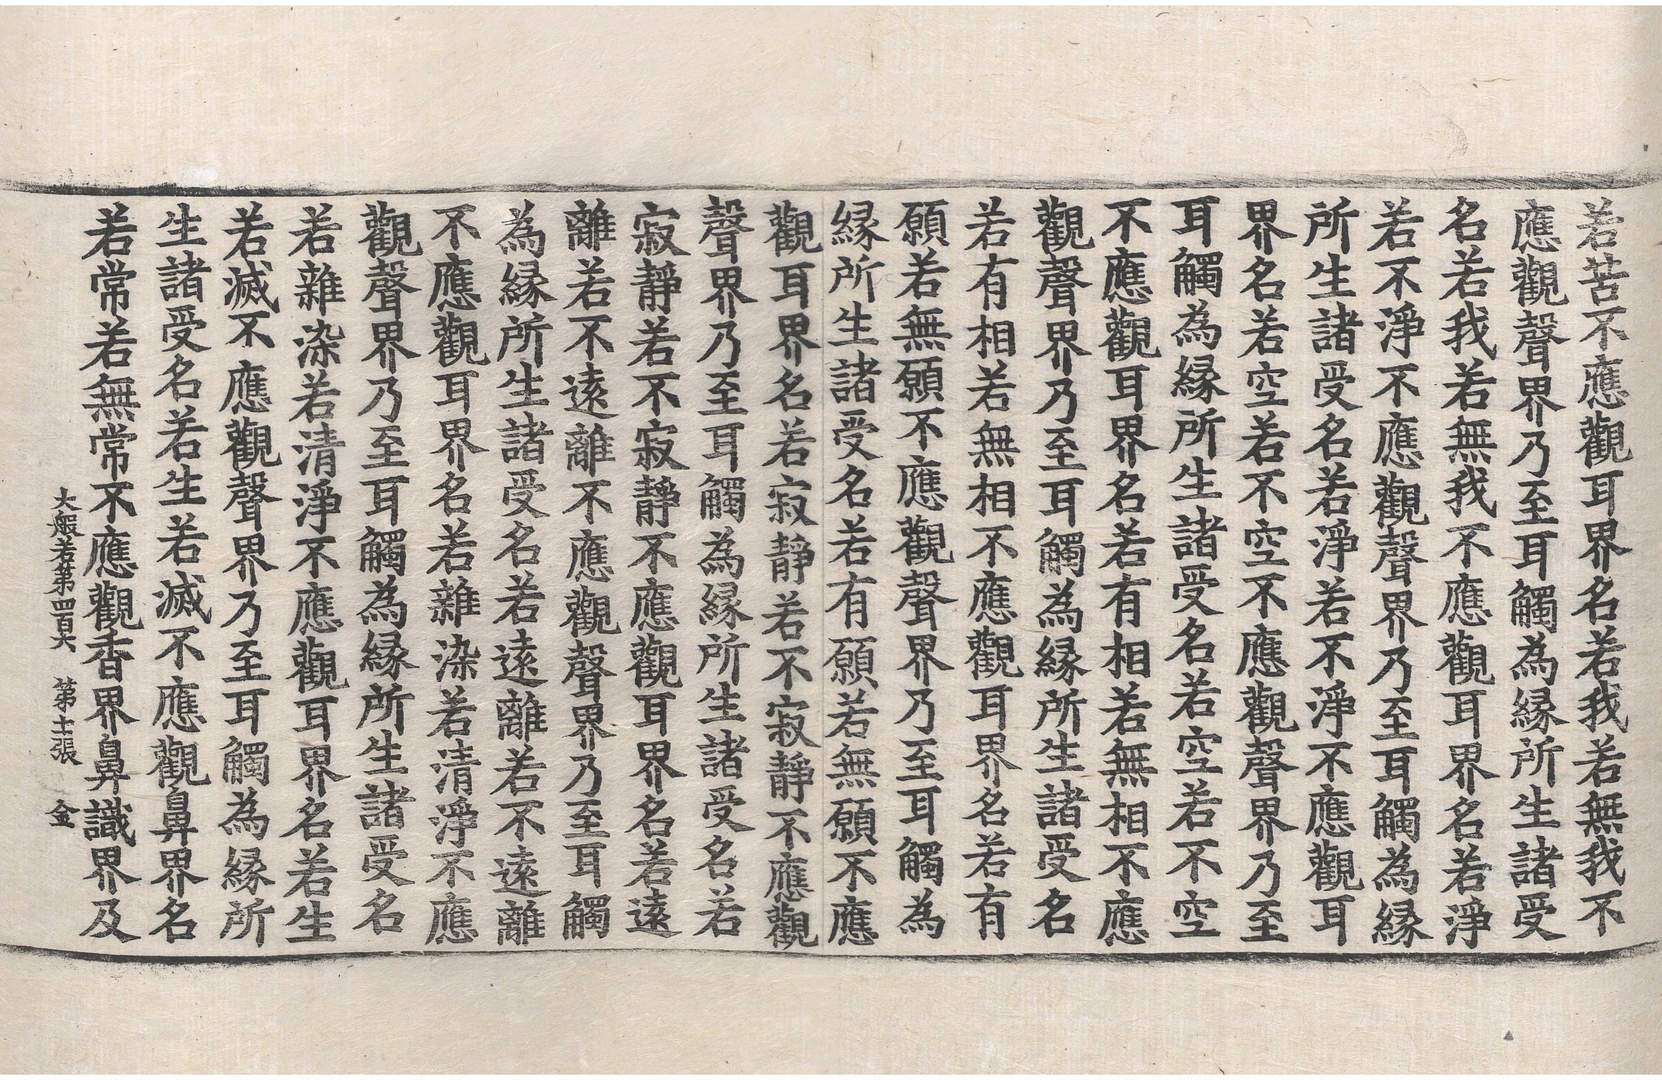 若苦不應觀耳界名若我若無我不
應觀聲界乃至耳觸為緣所生諸受
名若我若無我不應觀耳界名若淨
若不淨不應觀聲界乃至耳觸為緣
所生諸受名若淨若不淨不應觀耳
界名若空若不空不應觀聲界乃至
耳觸為緣所生諸受名若空若不空
不應觀耳界名若有相若無相不應
觀聲界乃至耳觸為緣所生諸受名
若有相若無相不應觀耳界名若有
願若無願不應觀聲界乃至耳觸為
緣所生諸受名若有願若無願不應
觀耳界名若寂靜若不寂靜不應觀
聲界乃至耳觸為緣所生諸受名若
寂靜若不寂靜不應觀耳界名若遠
離若不遠離不應觀聲界乃至耳觸
為緣所生諸受名若遠離若不遠離
不應觀耳界名若雜染若清淨不應
觀聲界乃至耳觸為緣所生諸受名
若雜染若清淨不應觀耳界名若生
若滅不應觀聲界乃至耳觸為緣所
生諸受名若生若滅不應觀鼻界名
若常若無常不應觀香界鼻識界及
大般若第四百六　第十一張　金